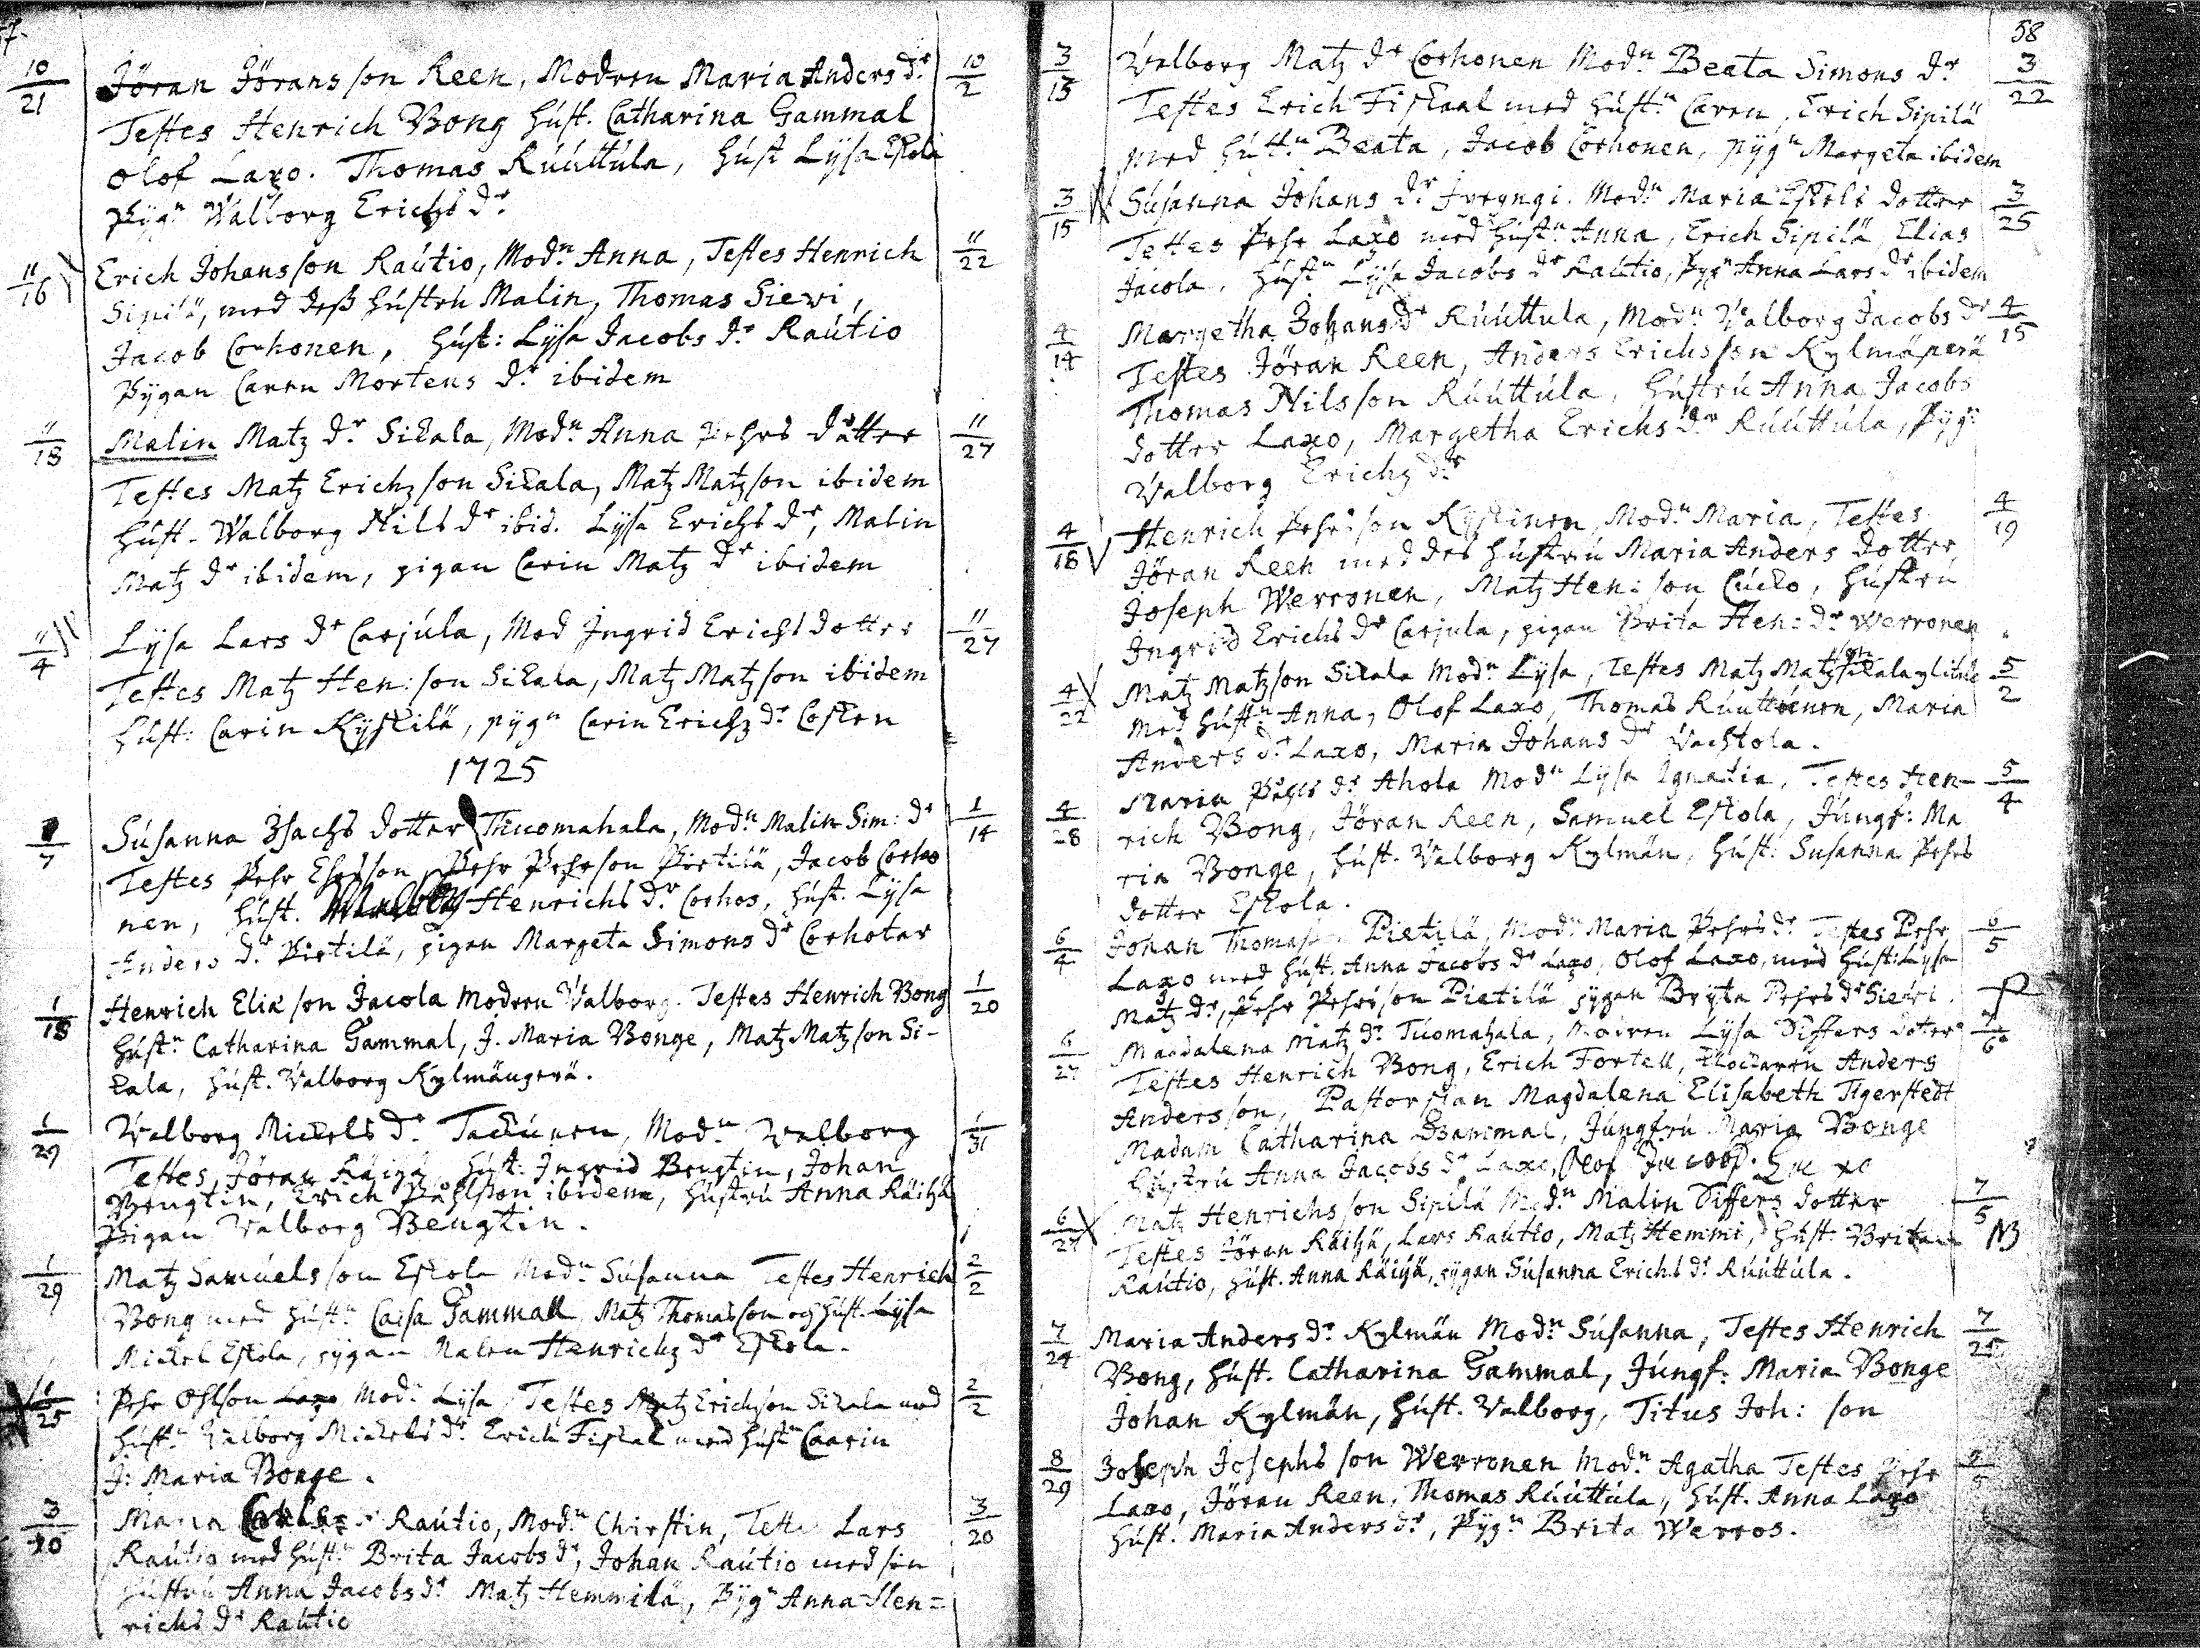 58
10/21 Jöran Jöransson Reen, Modren Maria Anders dr 10/2
Testes Henrich Bong Hust. Catharina Gammal
Olof Laxo. Thomas Rúúttúla, Húst Lÿsa Eskola
Pÿgn Walborg Erichs dr
11/16 Erich Johansson Raútio, Modn Anna, Testes Henrich 11/22
Sipilä, med dess Hústrú Malin, Thomas Siewi,
Jacob Corhonen, Húst: Lÿsa Jacobs dr Raútio
Pÿgan Caren Mortens dr ibidem
11/18 Malin Matz dr Sikala, Modn Anna Pehrs dotter 11/27
Testes Matz Erichzson Sikala, Matz Matzson ibidem
Húst. Walborg Nils dr ibid. Lÿsa Erichs dr, Malin
Matz dr ibidem, pigan Carin Matz dr ibidem
11/4 Lÿsa Lars dr Carjúla, Mod Ingrid Erichs dotter 11/27
Testes Matz Hen: son Sikala, Matz Matzson ibidem
Húst: Carin Kÿskilä, pÿgn Carin Erichz dr Cosken
1725
7 Súsanna Isachs dotter Túomahala, Modn Malin Sim: dr 1/14
Testes Pehr Pehr Pehrson Pietilä, Jacob Corho
nen, Húst. Henrichs dr Corhos, Húst. Lÿsa
Anders dr Pietilä, pigan Margeta Simons dr Corhotar
1/18 Henrich Eliæson Jacola Modren Valborg. Testes Henrich Bong 1/20
Hústn Catharina Gammal, J. Maria Bonge, Matz Matzson Si-
kala, Húst. Valborg Kylmänperä.
1/29 Valborg Mickels dr Tackúnen, Modn Valborg 1/31
Testes, Jöran Räihä, Húst: Ingrid Bengtin, Johan
Bengtin, Erich Påhlsson ibidem, Hústrú Anna Räihä
Pigan Valborg Bengtin.
1/29 Matz Samúelsson Eskola Modn Súsanna Testes Henrich 2/2
Bong med Hústn Caisa Gammall Matz Thomasson och Húst. Lÿsa
Mickel Eskola, pÿgan Malen Henrichz dr Eskola.
1/25 Pehr Ohlson Laxo Modn Lÿsa Testes Matz Erichson Sikala med 2/2
Hústn Valborg Mickels dr Erich Fiskal med Hústn Caarin
J: Maria Bonge.
3/20 Maria Raútio, Modn Chirstin, Testes Lars 3/20
Raútio med Hústn Brita Jacobs dr, Johan Raútio med sin
Hústrú Anna Jacobs dr Matz Hemmilä, Pÿgn Anna Hen=
richs dr Raútio
3/15 Valborg Matz dr Corhonen Modn Beata Simons dr 3/22
Testes Erich Fiskaal med Hústn Caren, Erich Sipilä
med Hústn Beata, Jacob Corhonen, pÿgn Margeta ibidem
3/15 Súsanna Johans dr Modn Maria Eskels dotter 3/25
Testes Pehr Laxo med Hústn Anna, Erich Sipilä, Elias
Jacola, Hústn Lÿsa Jacobs dr Raútio, Pÿgn Anna Lars dr ibidem
4/14 Margetha Johans dr Rúúttula, Modn Valborg Jacobs dr 4/15
Testes Jöran Reen, Anders Erichsson Kylmäperä
Thomas Nilsson Rúúttúla, Hústrú Anna Jacobs
dotter Laxo, Margetha Erichs dr Rúúttúla, Pÿgn
Valborg Erichz dr
4/18 Henrich Pehrsson Kÿskinen, Modn Maria, Testes 4/19
Jöran Reen med des Hústrú Maria Anders dotter
Joseph Werronen, Matz Hen: son Cúcko, Hústrú
Ingrid Erichs dr Carjula, pigan Brita Hen: dr Werronen
4/22 Matz Matzson Sikala Modn Lÿsa, Testes Matz Matzson Sikala 5/2
med Hústn Anna, Olof Laxo, Thomas Rúuttúnen, Maria
Anders dr Laxo, Maria Johans dr Vachtola.
4/28 Maria Påhls dr Ahola Modn Lÿsa Ignatia, Testes Hen- 5/4
rich Bong, Jöran Reen, Samuel Eskola, Júngf: Ma
ria Bonge, Húst. Valborg Kylmän, Húst: Susanna Pehrs
dotter Eskola.
6/4 Johan Thomasson Pietilä, Modn Maria Pehrs dr Testes Pehr 6/5
Laxo med Húst. Anna Jacobs dr Laxo, Olof Laxo, med Húst: Lÿsa
Matz dr, Pehr Pehrsson Pietilä pÿgan Brÿta Pehrs dr Siewi.
6/27 Magdalena Matz dr Túomahala, Modren Lÿsa Siffers doter
Testes Henrich Bong, Erich Fortell, Klockaren Anders
Andersson, Pastorskan Magdalena Elisabeth Tigerstedt
Madam Catharina Gammal, Júngfrú Maria Bonge
Hústrú Anna Jacobs dr Laxo, Olof Jacobs. Laxo
6/27 Matz Henrichsson Sipilä Modn Malin Siffers dotter 7/5
Testes Jöran Räihä, Lars Raútio, Matz Hemmi, Húst. Brita NB
Raútio, Húst. Anna Räihä, pÿgan Súsanna Erichs dr Rúúttúla.
7/24 Maria Anders dr Kylmän Modn Súsanna, Testes Henrich 7/25
Bong, Húst. Catharina Gammal, Júngf: Maria Bonge
Johan Kylmän, Húst. Valborg, Titus Joh: son
8/29 Joseph Josephsson Werronen Modn Agatha Testes Pehr
Laxo, Jöran Reen, Thomas Rúúttúla, Húst. Anna Laxo
Húst. Maria Anders dr, Pÿgn Brita Werros.